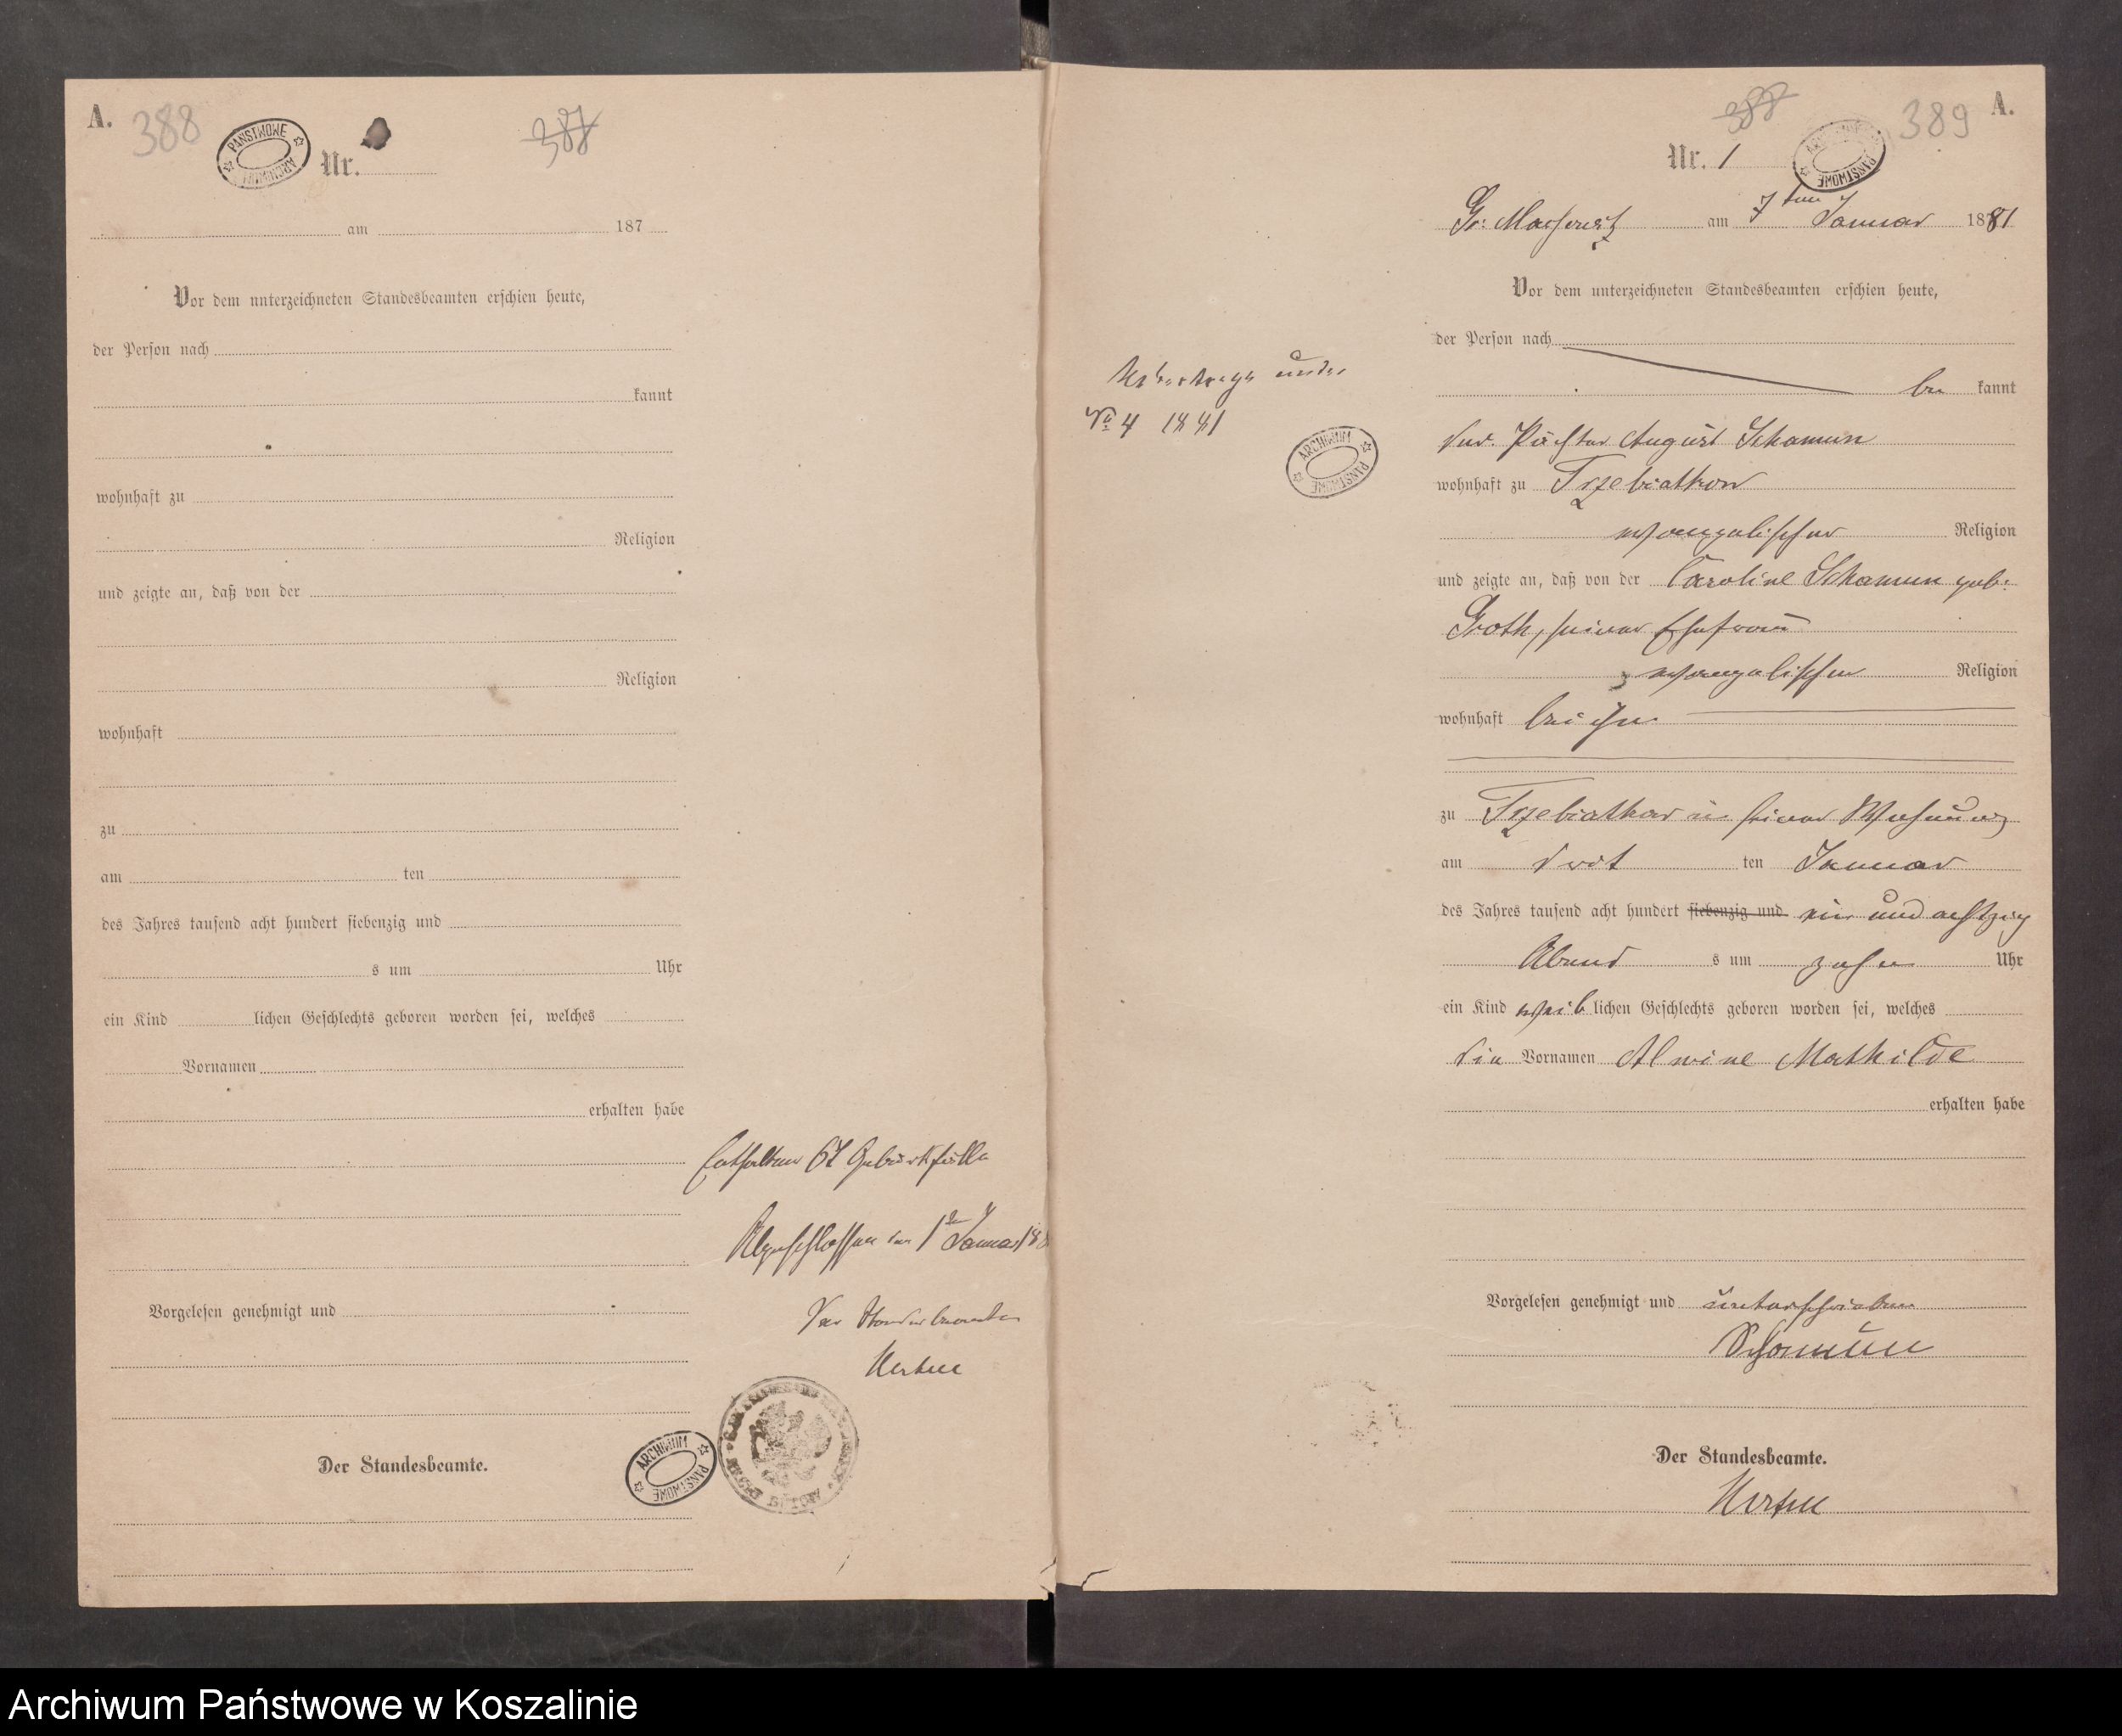 A.
388
387
PAŃSTWOWE ARCHIWUM
Nr.
am 187
Vor dem unterzeichneten Standesbeamten erschien heute,
der Person nach
kannt
wohnhaft zu
Religion
und zeigte an, daß von der
Religion
wohnhaft
zu
am ten
des Jahres tausend acht hundert siebenzig und
s um Uhr
ein Kind lichen Geschlechts geboren worden sei, welches
Vornamen
erhalten habe
Vorgelesen genehmigt und
Der Standesbeamte.
ARCHIWUM PAŃSTWOWE
Enthaltend Geburtsfälle
Abgeschlossen den 1 Januar 188
Der Standesbeamte
A.
389
388
Nr. 1
ARCHIWUM PAŃSTWOWE
Gr: Massowitz am 7ten Januar 1881
Vor dem unterzeichneten Standesbeamten erschien heute,
der Person nach
be kannt
der Pächter August Schamun
wohnhaft zu Trzebiatkow
evangelischer Religion
und zeigte an, daß von der Caroline Schamun geb:
Groth, seiner Ehefrau
evangelischer Religion
wohnhaft bei ihm
zu Trzebiatkow in seiner Wohnung
am ten Januar
des Jahres tausend acht hundert siebenzig und ein und achtzig
Abend s um zehn Uhr
ein Kind weib lichen Geschlechts geboren worden sei, welches
die Vornamen Alwine Mathilde
erhalten habe
Vorgelesen genehmigt und unterschrieben
Schamun
Der Standesbeamte.
unter
No 4 1881
ARCHIWUM PAŃSTWOWE
Archiwum Państwowe w Koszalinie